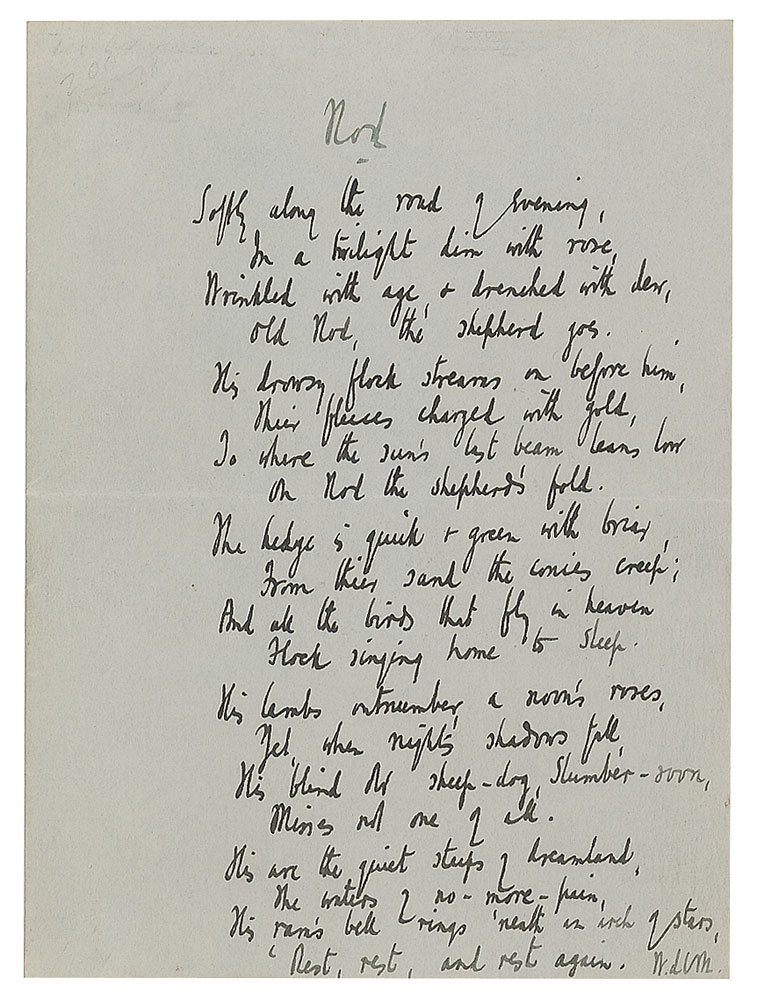 Nod
Softly along the road of Evening,
In a twilight dim with rose,
Wrinkled with age, & drenched with dew,
Old Nod, the shepherd goes.
His drowsy flock streams on before him,
Their fleeces charged with gold,
To where the sun's last beam leans low
On Nod the shepherd's fold.
The hedge is quick & green with briar,
From their sand the conies creep;
And all the birds that fly in heaven
Flock singing home to sleep.
His lambs outnumber a noon's roses,
Yet, when night's shadows fall,
His blind old sheep-dog, Slumber-soon,
Misses not one of all.
His are the quiet steeps of dreamland,
The waters of no-more-pain,
His ram's bell rings 'neath an arch of stars,
'Rest, rest, and rest again. W.d.l.M.